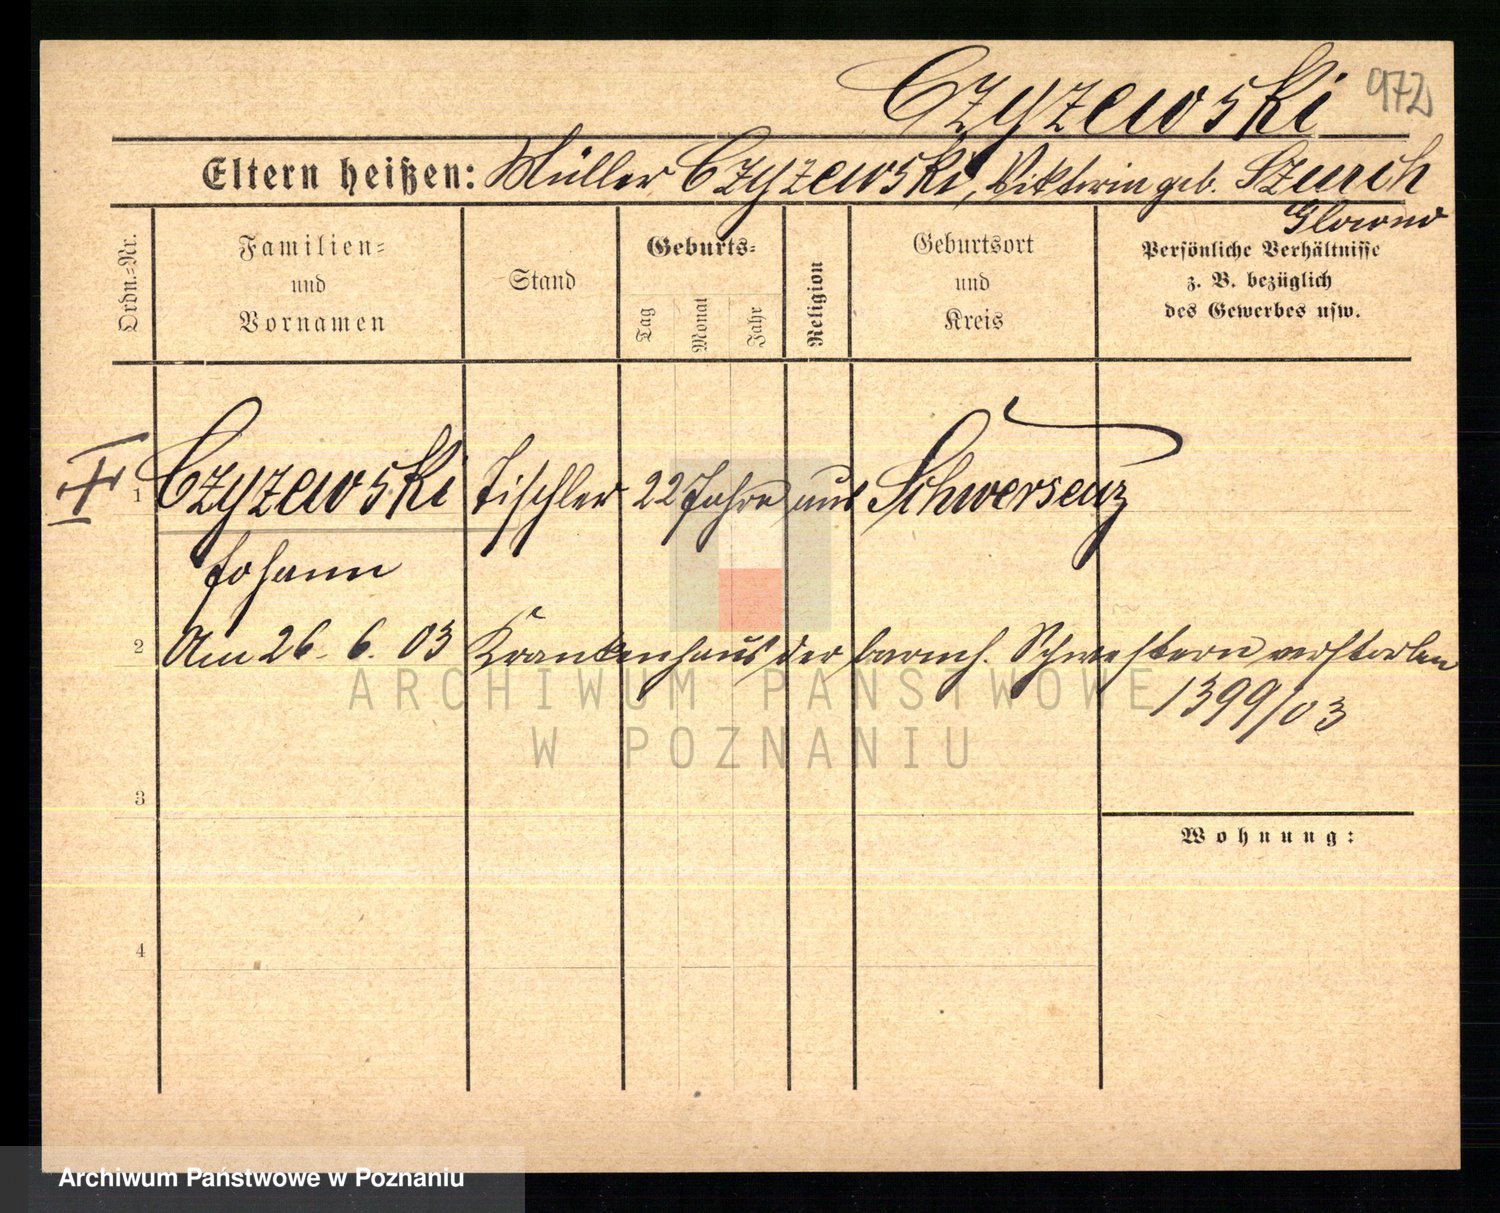 Czyzewski 972
Eltern heißen: Müller Czyzewski, Viktoria geb. Szurch
Glowno
Ordn.-Nr.
Familien-
und
Vornamen
Stand
Geburts-
Tag
Monat
Jahr
Religion
Geburtsort
und
Kreis
Persönliche Verhältnisse
z. B. bezüglich
des Gewerbes usw.
1 Czyzewski Tischler 22 Jahre aus Schwersenz
Johann
2 Am 26. 6. 03 Krankenhaus der barmh. Schwestern verstorben
1399/03
ARCHIWUM PAŃSTWOWE
W POZNANIU
3
Wohnung:
4
Archiwum Państwowe w Poznaniu